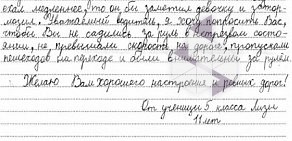 ехал медленнее, то он бы заметил девочку и затор-
мозил. Уважаемый водитель, я хочу попросить Вас,
чтобы Вы не садились за руль в нетрезвом состо-
янии, не превышали скорость на дороге, пропускали
пешеходов на переходе и были внимательны за рулём.
Желаю Вам хорошего настроения и ровных дорог!
От ученицы 5 класса Лизы
11 лет